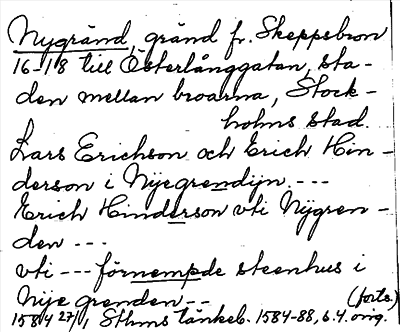 Nygränd, gränd fr. Skeppsbron
16-18 till Österlånggatan, sta-
den mellan broarna, Stock-
holms stad.
Lars Erichson och Erich Hin-
derson i Nijegrendijn ---
Erich Hinderson vti Nÿgren-
den ---
vti --- förnempde steenhus i
Nije grenden -- (forts.)
1584 27/1, Sthms tänkeb. 1584-88, s. 4. orig.